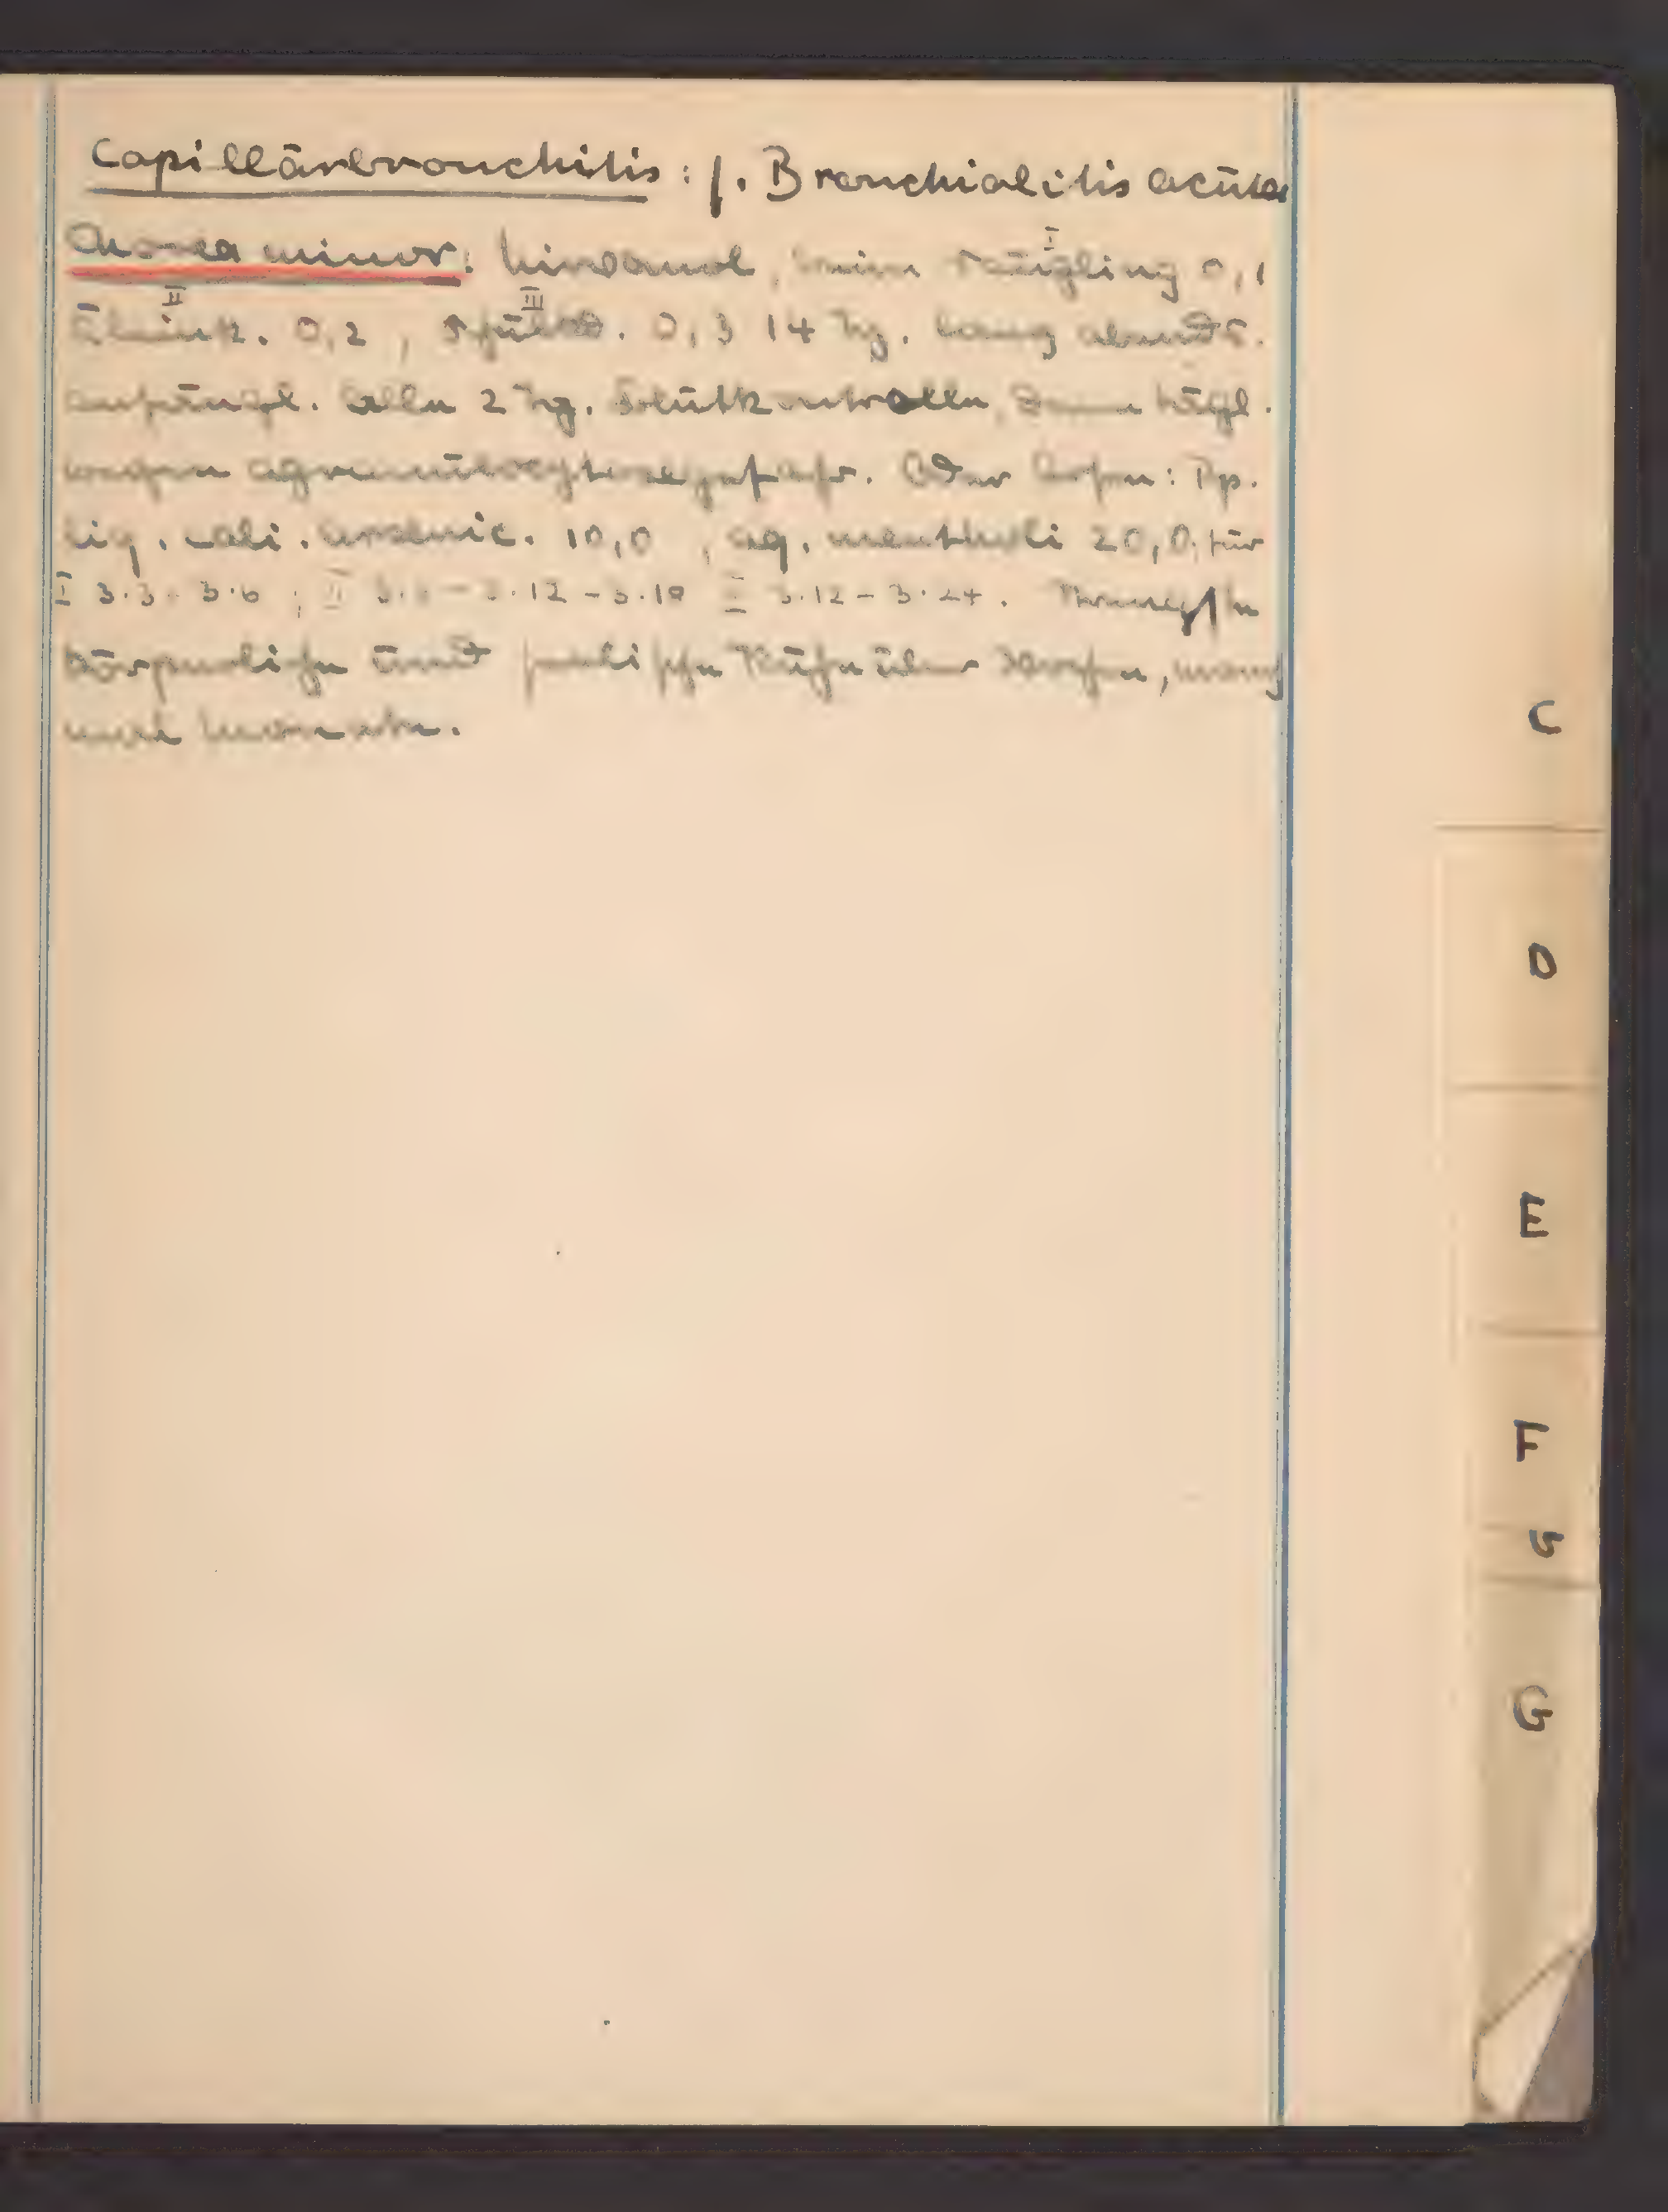 Capillärbronchitis: s. Bronchiolitis acuta
Chorea minor: Nirvanol, beim Säugling I 0,1
II Kleink. 0,2, III Schulkd. 0,3 14 Tg. lang abends.
anfängl. alle 2 Tg. Blutkontrolle, dann tägl.
wegen Agranulocytosegefahr. Oder Arsen: Rp.
Liq. Kali. arsenic. 10,0, aq. 20,0, für
I 3·3 - 3·6; II - 3·12 - 3·18 3·12 - 3·24.
körperliche und seelische Ruhe über Wochen, wenn
Monate.
C
D
E
F
G
G